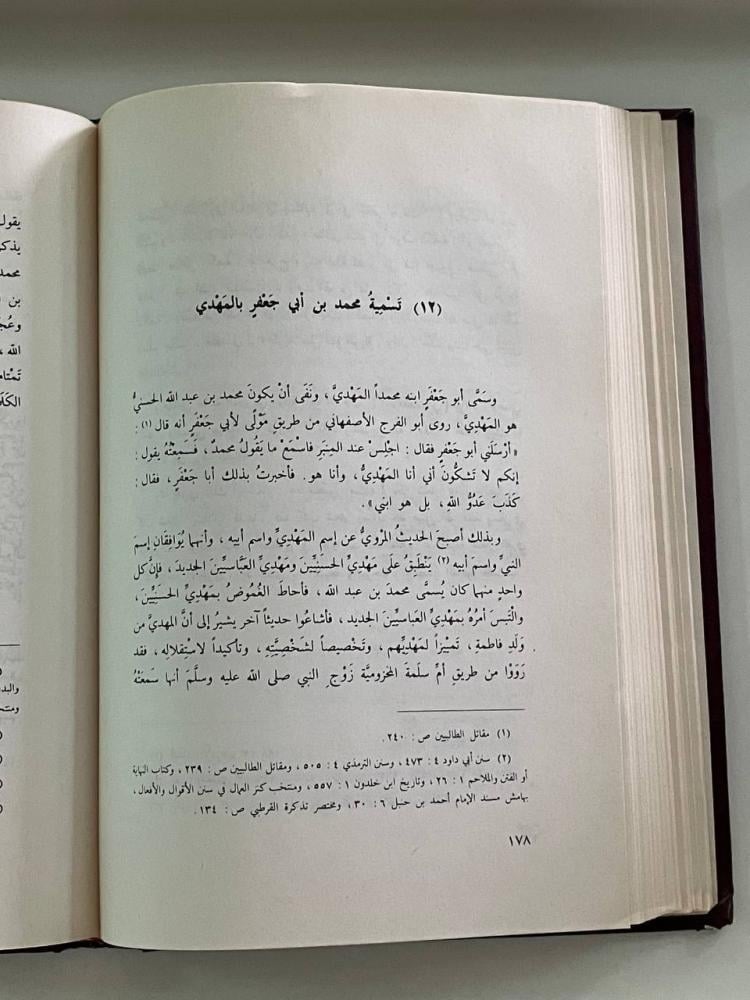 (١٢) تَسْمِيةُ محمد بن أبي جَعْفرٍ بالمَهْدي
وسَمَّى أبو جَعْفَرٍ ابنه محمداً المَهْديَّ، ونَفَى أنْ يكونَ محمد بن عبد الله الحسنيُّ
هو المَهْدِيَّ، روى أبو الفرج الأصفهاني من طريقِ مَوْلًى لأبي جَعْفَرٍ أنه قال (١) :
« أَرْسَلَني أبو جَعْفرٍ فقال : اجْلِسْ عند المِنبَر فاسْمَعْ ما يَقُولُ محمدٌ، فَسَمِعْتُهُ يقول :
إنكم لا تَشكُّونَ أني أنا المَهْدِيُّ، وأنا هو. فأخبرتُ بذلك أبا جَعْفَرٍ، فقال :
كَذَبَ عَدُوُّ اللهِ، بل هو ابني».
وبذلك أصبحَ الحديثُ المرْويُّ عن إسم المَهْدِيِّ واسم أبيه، وأنهما يُوَافِقَانِ إسمَ
النبيِّ واسمَ أبيه (٢) يَنْطَبِقُ على مَهْدِيِّ الحسَنِيِّينَ ومَهْدِيِّ العَبَّاسِيِّينَ الجديد، فإنَّ كل
واحدٍ منهما كان يُسمَّى محمدَ بن عبد الله، فأحاطَ الغُمُوضُ بمَهْدِيِّ الحسَنِيِّينَ،
والْتَبَسَ أمرُهُ بمَهْدِيِّ العَبَّاسِيِّينَ الجديد، فأشاعُوا حديثاً آخر يشيرُ إلى أنَّ المهديَّ من
وَلَدِ فاطمةَ، تَمْيِيزاً لمَهْدِيِّهم، وتَخْصِيصاً لشَخْصِيَّتِهِ، وتأكيداً لاستِقْلالِه، فقد
رَوَوْا من طريقِ أمِّ سلَمةَ المخزوميَّة زَوْجِ النبي صلى الله عليه وسلَّمَ أنها سَمِعَتْهُ
(١) مقاتل الطالبيين ص : ٢٤٠.
(٢) سنن أبي داود ٤ : ٤٧٣، وسنن الترمذي ٤ : ٥٠٥، ومقاتل الطالبيين ص : ٢٣٩، وكتاب النهاية
أو الفتن والملاحم ١ : ٢٦، وتاريخ ابن خلدون ١ : ٥٥٧، ومنتخب كنز العمال في سنن الأقوال والأفعال،
بهامش مسند الإمام أحمد بن حنبل ٦ : ٣٠، ومختصر تذكرة القرطبي ص : ١٣٤.
١٧٨
يقول
يذكر
محمد
بن
الله،